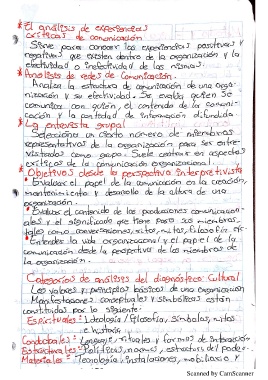 * El análisis de experiencias
críticas de comunicación
Sirve para conocer las experiencias positivas y
negativas que existen dentro de la organización y la
efectividad o inefectividad de las mismas.
* Análisis de redes de Comunicación.
Analiza la estructura de comunicación de una orga-
nización y su efectividad. Se evalúa quien se
comunica con quién, el contenido de la comuni-
cación y la cantidad de información difundida.
* La entrevista grupal
Selecciona un cierto número de miembros
representativos de la organización para ser entre-
vistados como grupo. Suele centrar en aspectos
críticos de la comunicación organizacional.
* Objetivos desde la perspectiva interpretivista
* Evaluar el papel de la comunicación en la creación,
mantenimiento y desarrollo de la cultura de una
organización.
* Evaluar el contenido de las producciones comunicacio-
nales y el significado que tiene para sus miembros,
tales como conversaciones, ritos, mitos, filosofía etc.
* Entender la vida organizacional y el papel de la
comunicación desde la perspectiva de los miembros de
la organización.
Categorías de análisis del diagnóstico Cultural
Los valores y principios básicos de una organización
Manifestaciones conceptuales y simbólicas están
constituidas por lo siguiente:
Espirituales: Ideología / filosofía, símbolos, mitos
e historia
Conductuales: Lenguaje, rituales y formas de interacción
Estructurales: Políticas, normas, estructura del poder.
Materiales: Tecnología, instalaciones, mobiliario y
Scanned by CamScanner